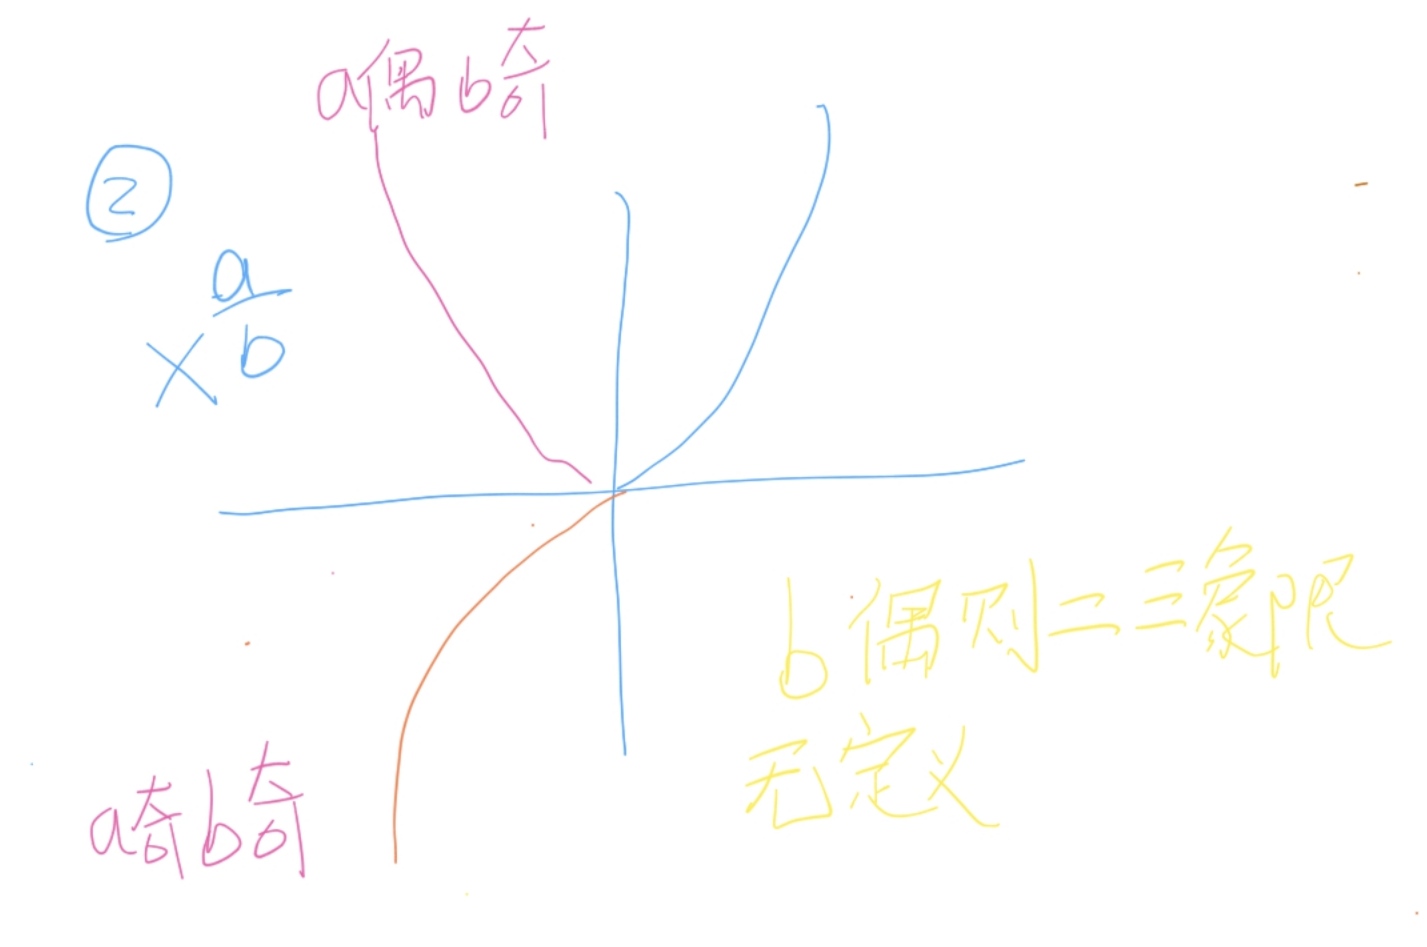 a偶b奇
②
x^{\frac{a}{b}}
b偶则二三象限
无定义
a奇b奇